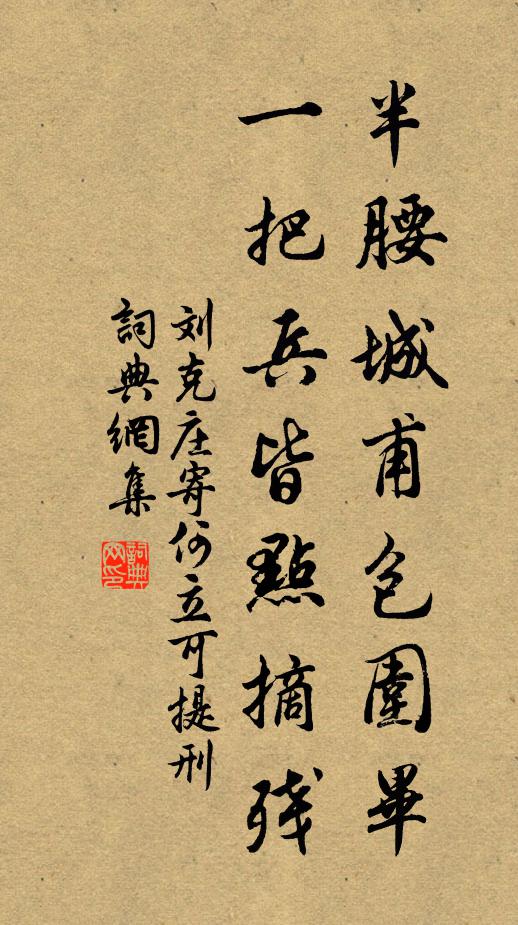 半腰城甫包圍畢
一把兵皆點摘殘
刘克庄寄何立可提刑
詞典網集
詞典網印